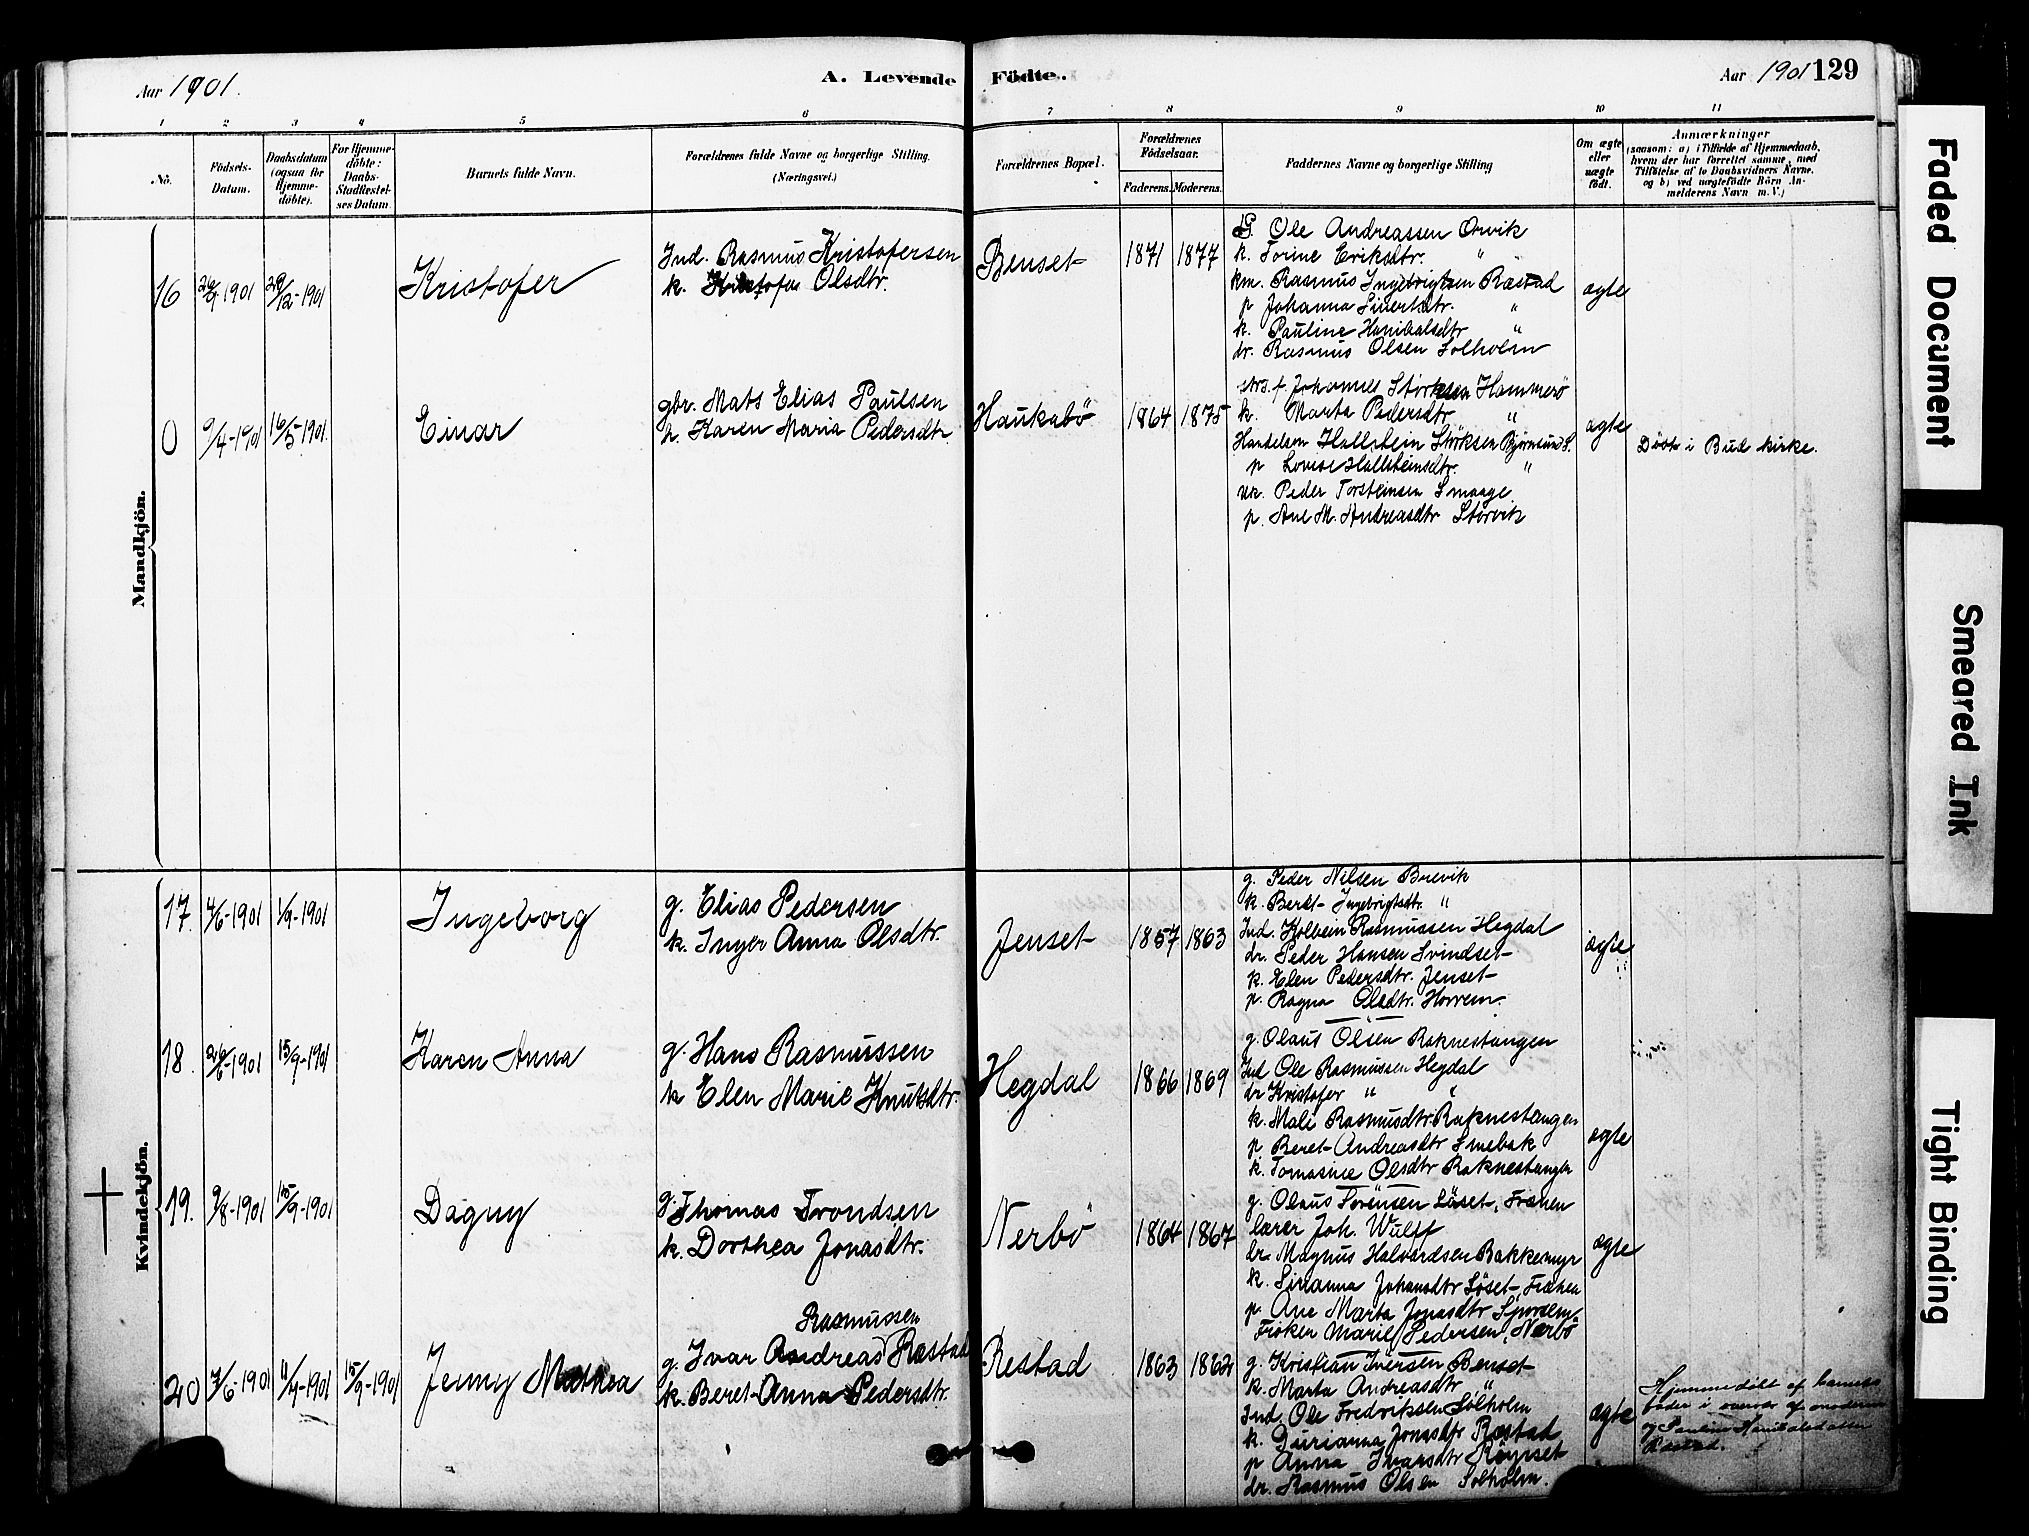 Aar 1901.
A. Levende Födte.
Aar 1901 129
1 2 3 4 5 6 7 8 9 10 11
No.
Födsels-
Datum.
Daabsdatum
(ogsaa for
Hjemme-
döbte).
For Hjemme-
döbte:
Daabs-
Stadfæstel-
ses Datum.
Barnets fulde Navn.
Forældrenes fulde Navne og borgerlige Stilling.
(Næringsvei.)
Forældrenes Bopæl.
Forældrenes
Födselsaar.
Faderens. Moderens.
Faddernes Navne og borgerlige Stilling
Om ægte
eller
uægte
födt.
Anmærkninger
(saasom: a) i Tilfælde af Hjemmedaab,
hvem der har forrettet samme, med
Tilföielse af to Daabsvidners Navne,
og b) ved uægtefödte Börn An-
melderens Navn m. V.)
Mandkjön.
16 1901 29/12-1901
Kristofer
Ind. Rasmus Kristofersen
k. Olsdtr.
Benset
1871 1877
G. Ole Andreassen Orvik
k. Torine Eriksdtr. "
km. Rasmus Ingebrigtsen Ræstad
p Johanna Sivertsdtr. "
k. Pauline Hanibalsdtr "
dr. Rasmus Olsen Solholm
ægte
0 9/4-1901 16/5-1901
Einar
gbr. Mats Elias Paulsen
h. Karen Maria Pedersdtr.
Haukabö
1864 1875
f. Johannes Størksen Hammerö
h. Marta Pedersdtr "
Handelsm Hallstein Størksen Bjørnsund S.
p Lovise Hallsteinsdtr. "
Peder Torsteinsen Smaage
p. Ane M. Andreasdtr Storvik
ægte
Døbt i Bud kirke.
Kvindekjön.
17. 4/6-1901 1/9-1901
Ingeborg
g. Elias Pedersen
k. Inger Anna Olsdtr.
Jenset
1857 1863
g. Peder Nilsen Brevik
k. Beret Ingebrigtsdtr. "
Ind. Kolbein Rasmussen Hegdal
dr. Peder Hansen Svindset
k. Elen Pedersdtr. Jenset
p. Ragna Olsdtr. Horrem.
ægte
18. 26/6-1901 15/9-1901
Karen Anna
g. Hans Rasmussen
k Elen Marie Knutsdtr.
Hegdal
1866 1869
g. Olaus Olsen Raknestangen
Ind Ole Rasmussen Hegdal
dr Kristofer " "
k. Mali Rasmusdtr. Raknestangen
p Beret Andreasdtr Smebak
k. Tomasine Olsdtr Raknestangen
ægte
19. 9/8-1901 15/9-1901
Dagny
g. Thomas Trondsen
k. Dorthea Jonasdtr.
Nerbö
1864 1867
g. Olaus Sörensen Löset, Frænen
lærer Joh. Wulff
dr. Magnus Halvardsen Bakkemyr
k. Sirianna Johansdtr Löset Frænen
p Ane Marta Jonasdtr Sporsem
Fröken Marie Pedersen, Nerbö
ægte
20 7/6-1901 11/7-1901 15/9-1901
Jenny Mathea
Rasmussen
g. Ivar Andreas Ræstad
k. Beret Anna Pedersdtr.
Ræstad
1863 1862
g. Kristian Iversen Benset
k. Marta Andreasdtr "
Ind. Ole Fredriksen Solholm
k. Durianna Jonasdtr Ræstad
p Anna Ivarsdtr Röymset
dr. Rasmus Olsen Solholm.
ægte
Hjemmedöbt af barnets
fader i overvær af moderen
og Pauline Hanibalsdatter
Ræstad.
Faded Document
Smeared Ink
Tight Binding